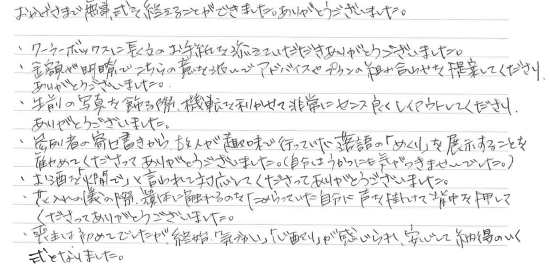 おかげさまで無事式を終えることができました。ありがとうございました。
・クーラーボックスに長文のお手紙を添えていただきありがとうございました。
・金額が明瞭でこちらの意を汲んでアドバイスやプランの組み合わせを提案してくださり、
ありがとうございました。
・生前の写真を飾る際、機転を利かせて非常にセンス良くレイアウトしてくださり、
ありがとうございました。
・参列者の寄せ書きから、故人が趣味で行っていた落語の「めくり」を展示することを
薦めてくださってありがとうございました。(自分はうかつにも気がつきませんでした。)
・お酒を「人間で」と言われて対応してくださってありがとうございました。
・花入れの儀の際、遺体に触れるのをためらっていた自分に声を掛けて背中を押して
くださってありがとうございました。
・喪主は初めてでしたが終始、気遣い、「心配り」が感じられ、安心して納得のいく
式となりました。